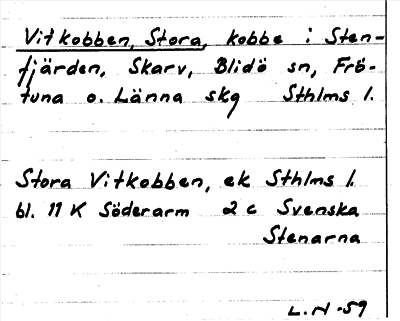 Vitkobben, Stora, kobbe i Sten-
fjärden, Skarv, Blidö sn, Frö-
tuna o. Länna skg Sthlms l.
Stora Vitkobben, ek Sthlms l.
bl. 11 K Söderarm 2 c Svenska
Stenarna
L.N -59